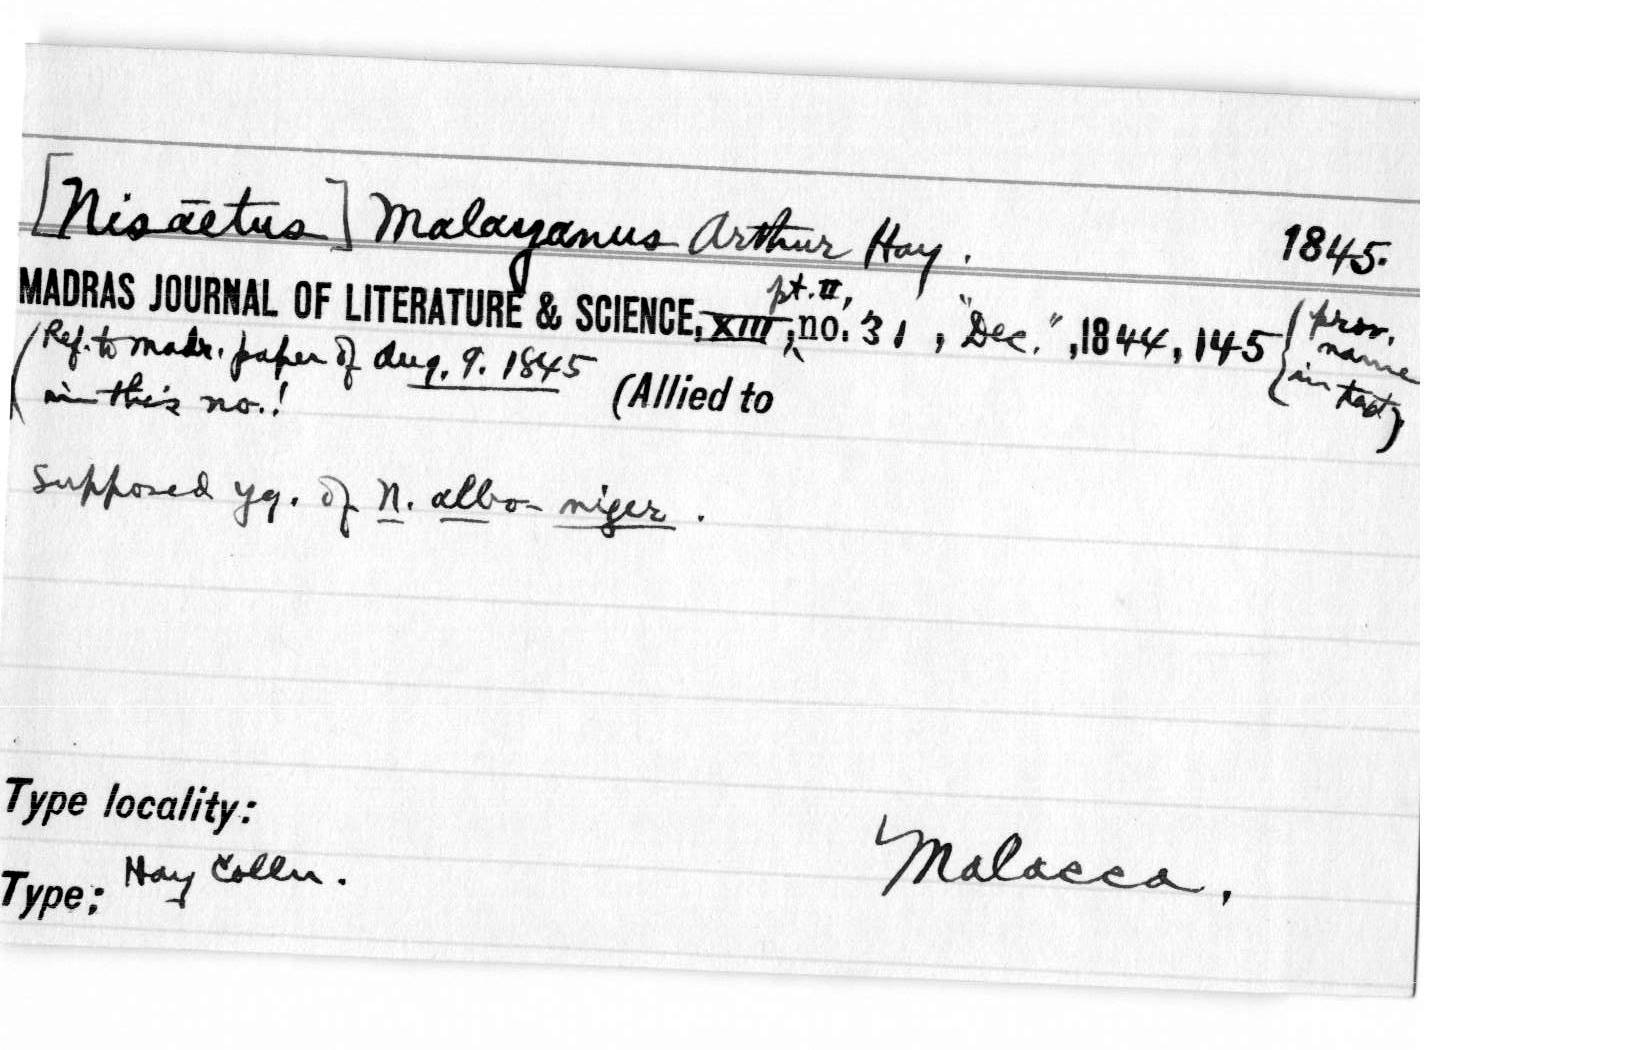 [Nisaëtus] Malayanus Arthur Hay. 1845.
MADRAS JOURNAL OF LITERATURE & SCIENCE, XIII, pt. II, no. 31, "Dec.", 1844, 145 (prov. name in text)
(Ref. to madr. paper of Aug. 9. 1845
in this no.!
(Allied to
Supposed yg. of N. albo-niger.
Type locality:
Malacca,
Type: Hay Colln.